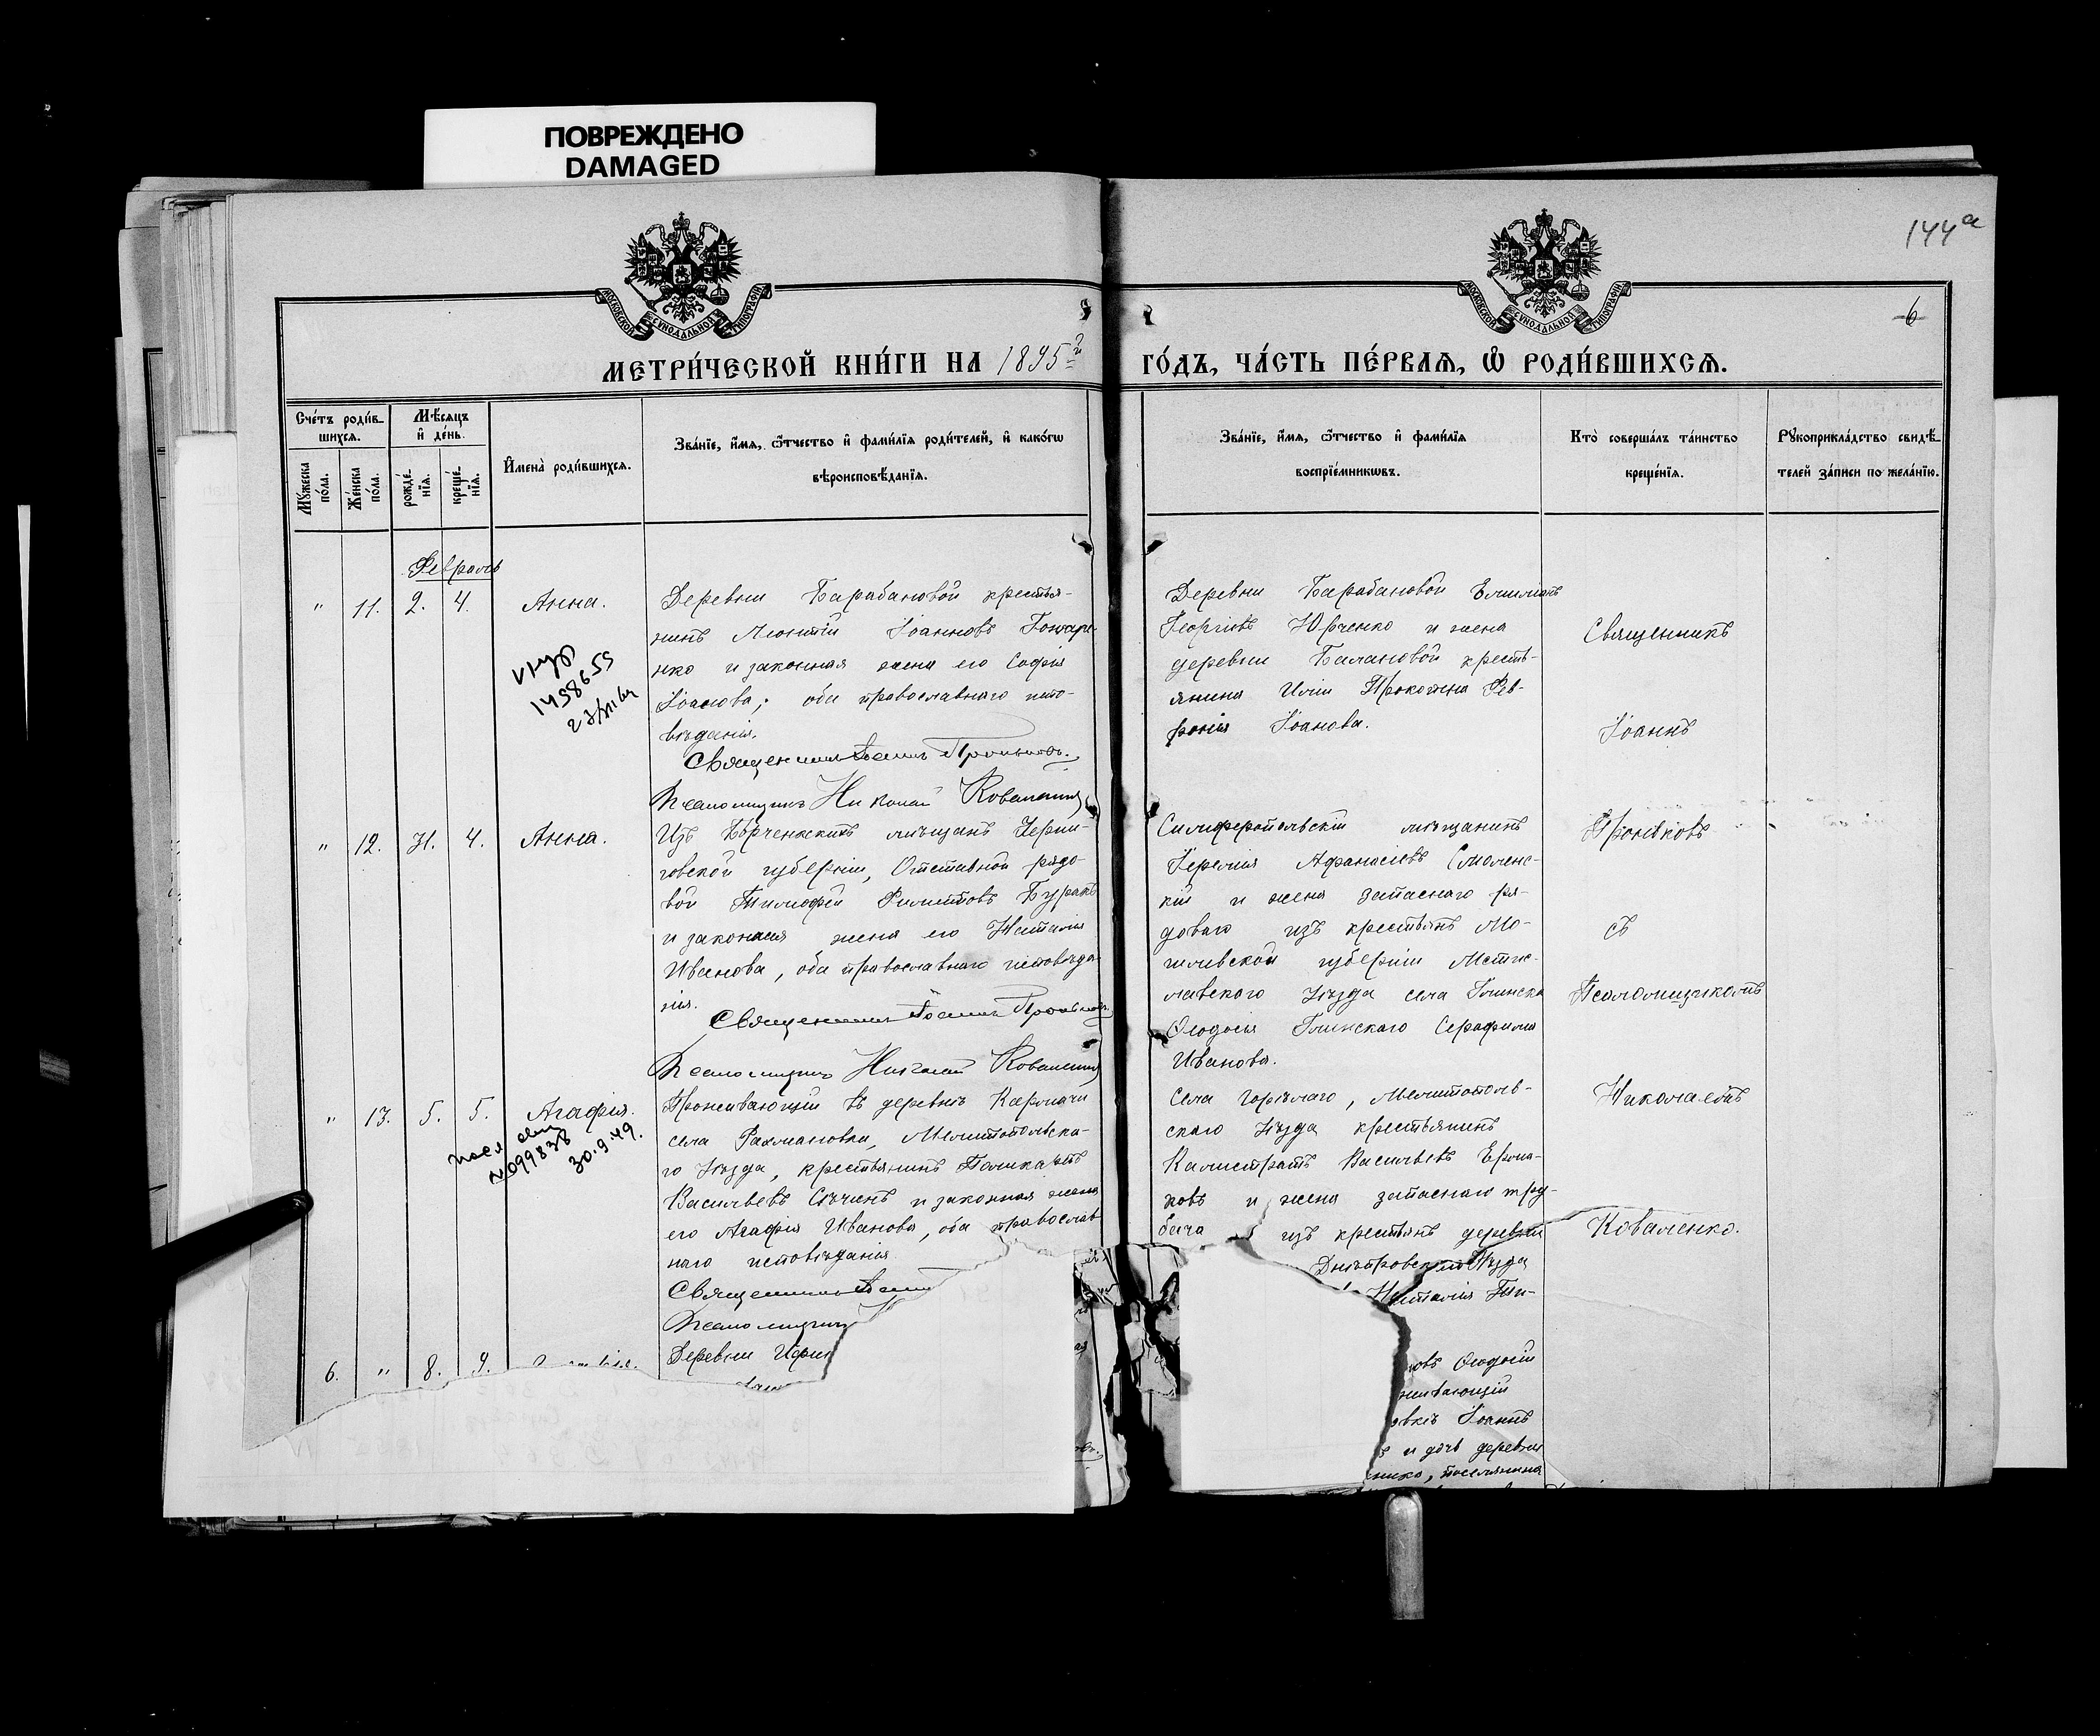 ПОВРЕЖДЕНО
DAMAGED
144а
6
МОСКОВСКОЙ СѴНОДАЛЬНОЙ ТИПОГРАФІИ
МОСКОВСКОЙ СѴНОДАЛЬНОЙ ТИПОГРАФІИ
МЕТРИ́ЧЕСКОЙ КНИ́ГИ НА 1895й ГО́ДЪ, ЧА́СТЬ ПЕ́РВАѦ, Ѽ РОДИ́ВШИХСѦ.
Сче́тъ роди́в-
шихсѧ.
Мꙋ́жеска по́ла.
Же́нска по́ла.
Мѣ́сѧцъ
и҆ де́нь.
рожде́-
нїѧ.
креще́-
нїѧ.
И҆мена̀ роди́вшихсѧ.
Зва́нїе, и҆́мѧ, ѻ҆́тчество и҆ фами́лїѧ роди́телей, и҆ како́гѡ
вѣроисповѣ́данїѧ.
Зва́нїе, и҆́мѧ, ѻ҆́тчество и҆ фами́лїѧ
воспрїе́мникѡвъ.
Кто̀ соверша́лъ та́инство
креще́нїѧ.
Рꙋкоприкла́дство свидѣ́-
телей за́писи по жела́нїю.
Февраль
" 11. 2. 4. Анна.
1498655
Деревни Барабановой крестья-
нинъ Леонтій Іоанновъ Гончаре-
нко и законная жена его Софія
Іоанова; оба православнаго испо-
вѣданія.
Священникъ Іоаннъ
Псаломщикъ Николай Коваленко
Деревни Барабановой Емиліанъ
Георгіевъ Юрченко и жена
деревни Балановой кресть-
янина Иліи Прокопена Фев-
ронія Іоанова.
Священникъ
Іоаннъ
" 12. 31. 4. Анна.
Изъ мѣщанъ Черни-
говской губерніи, Отставной рядо-
вой Тимофей Филиповъ Буракъ
и законная жена его Наталія
Иванова, оба православнаго исповѣда-
нія.
Священникъ Іоаннъ
Псаломщикъ Николай Коваленко
Симферопольскій мѣщанинъ
Іеремія Афанасіевъ Смоленс-
кій и жена запаснаго ря-
доваго изъ крестьянъ Мо-
гилевской губерніи Мстис-
лавскаго уѣзда села Глинска
Ѳеодосія Глинскаго Серафима
Иванова.
съ
Псаломщикомъ
" 13. 5. 5. Агафія.
N099838
30.9.49.
Проживающій въ деревнѣ
села Рахмановки, Мелитопольска-
го уѣзда, крестьянинъ Поликарпъ
Васильевъ Сычинъ и законная жена
его Агафія Иванова, оба православ-
наго исповѣданія
Священникъ Іоаннъ
Псаломщикъ
Села Горѣлаго, Мелитополь-
скаго уѣзда крестьянинъ
Калистратъ Васильевъ Ерма-
ковъ и жена запаснаго тру-
бача изъ крестьянъ деревни
Днѣпровскаго уѣзда
Наталія Ти-
Николаемъ
Коваленко.
6. " 8. 9.
Деревни
Ѳеодосій
живающій
Іоаннъ
и дочь деревни
, поселянина